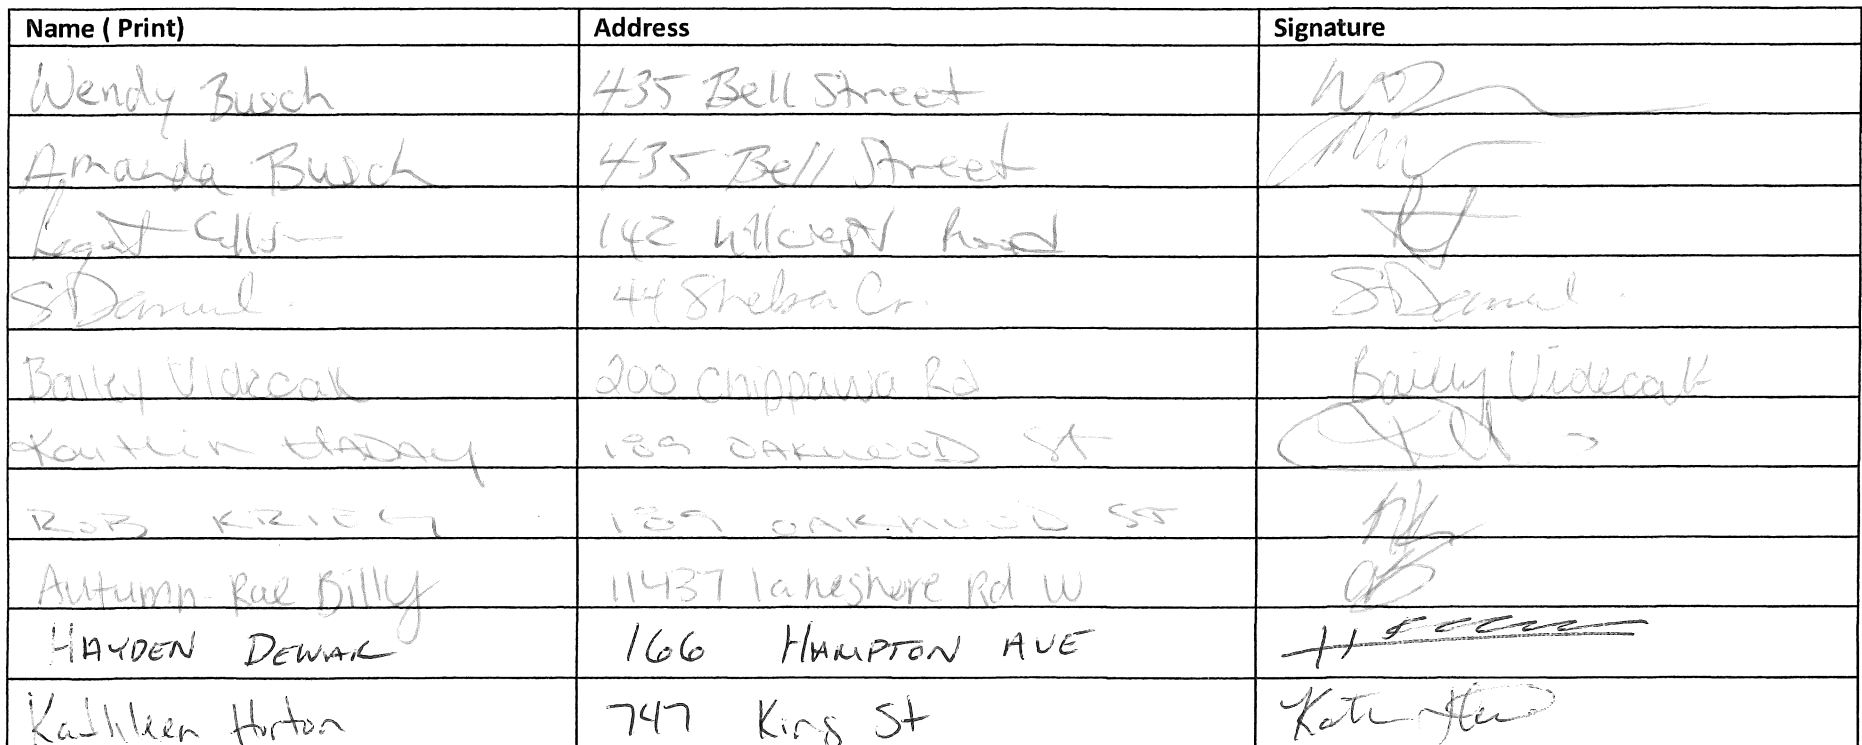 Name ( Print) Address Signature
Wendy Busch 435 Bell Street
Amanda Busch 435 Bell Street
142 Hillcrest Road
SDaniel. 44 Sheba Cr. SDaniel.
Bailey Videcak 200 Chippawa Rd Bailey Videcak
Kaitlin HADAY 189 OAKWOOD St
ROB KRIEG 189 OAKWOOD ST
Autumn-Rae Billy 11437 lakeshore Rd W
HAYDEN DEWAR 166 HAMPTON AVE
Kathleen Horton 747 King St